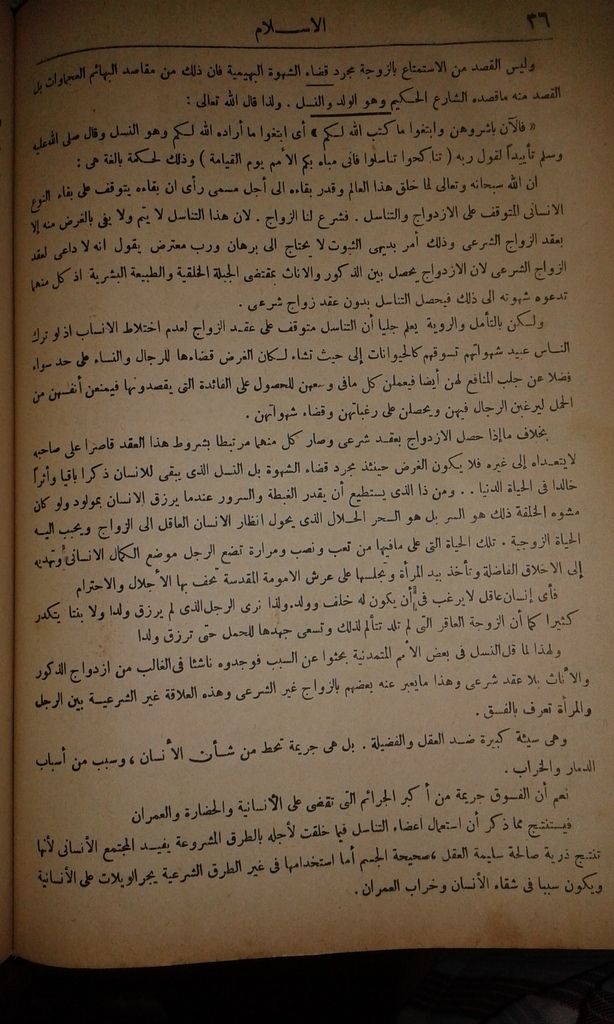 ٣٦
الاســلام
وليس القصد من الاستمتاع بالزوجة مجرد قضاء الشهوة البهيمية فان ذلك من مقاصد البهائم العجماوات بل
القصد منه ماقصده الشارع الحكيم وهو الولد والنسل . ولذا قال الله تعالى :
« فالآن باشروهن وابتغوا ما كتب الله لكم » أى ابتغوا ما أراده الله لكم وهو النسل وقال صلى الله عليه
وسلم تأييداً لقول ربه ( تناكحوا تناسلوا فانى مباه بكم الأمم يوم القيامة ) وذلك لحكمة بالغة هى :
ان الله سبحانه وتعالى لما خلق هذا العالم وقدر بقاءه الى أجل مسمى رأى ان بقاءه يتوقف على بقاء النوع
الانسانى المتوقف على الازدواج والتناسل . فشرع لنا الزواج . لان هذا التناسل لا يتم ولا يفى بالغرض منه إلا
بعقد الزواج الشرعى وذلك أمر بديهى الثبوت لا يحتاج الى برهان ورب معترض يقول انه لا داعى لعقد
الزواج الشرعى لان الازدواج يحصل بين الذكور والاناث بمقتضى الجبلة الخلقية والطبيعة البشرية اذ كل منهما
تدعوه شهوته الى ذلك فيحصل التناسل بدون عقد زواج شرعى .
ولكن بالتأمل والروية يعلم جليا أن التناسل متوقف على عقد الزواج لعدم اختلاط الانساب اذ لو ترك
الناس عبيد شهواتهم تسوقهم كالحيوانات إلى حيث تشاء لكان الغرض قضاءها للرجال والنساء على حد سواء
فضلا عن جلب المنافع لهن أيضا فيعملن كل مافى وسعهن للحصول على الفائدة التى يقصدونها فيمنعن أنفسهن من
الحمل ليرغبن الرجال فيهن ويحصلن على رغباتهن وقضاء شهواتهن .
بخلاف ماإذا حصل الازدواج بعقد شرعى وصار كل منهما مرتبطا بشروط هذا العقد قاصرا على صاحبه
لايتعداه إلى غيره فلا يكون الغرض حينئذ مجرد قضاء الشهوة بل النسل الذى يبقى للانسان ذكرا باقيا وأثراً
خالدا فى الحياة الدنيا . . ومن ذا الذى يستطيع أن يقدر الغبطة والسرور عندما يرزق الانسان بمولود ولو كان
مشوه الخلقة ذلك هو السر بل هو السحر الحلال الذى يحول انظار الانسان العاقل الى الزواج ويحبب اليه
الحياة الزوجية . تلك الحياة التى على مافيها من تعب ونصب ومرارة تضع الرجل موضع الكمال الانسانى وتهديه
إلى الاخلاق الفاضلة وتأخذ بيد المرأة وتجلسها على عرش الامومة المقدسة تحف بها الأجلال والاحترام
فأى إنسان عاقل لايرغب فى أن يكون له خلف وولد. ولذا نرى الرجل الذى لم يرزق ولدا ولا بنتا يتكدر
كثيرا كما أن الزوجة العاقر التى لم تلد تتألم لذلك وتسعى جهدها للحمل حتى ترزق ولدا
ولهذا لما قل النسل فى بعض الأمم المتمدنية بحثوا عن السبب فوجدوه ناشئا فى الغالب من ازدواج الذكور
والأناث بلا عقد شرعى وهذا مايعبر عنه بعضهم بالزواج غير الشرعى وهذه العلاقة غير الشرعيــة بين الرجل
والمرأة تعرف بالفسق .
وهى سيئة كبيرة ضد العقل والفضيلة . بل هى جريمة تحط من شــأن الأنسان ، وسبب من أسباب
الدمار والخراب .
نعم أن الفسوق جريمة من أكبر الجرائم التى تقضى على الأنسانية والحضارة والعمران
فيستنتج مما ذكر أن استعمال اعضاء التناسل فيما خلقت لأجله بالطرق المشروعة يفيــد المجتمع الأنسانى لأنها
تنتــج ذرية صالحة سليمة العقل ،صحيحة الجسم أما استخدامها فى غير الطرق الشرعية يجر الويلات على الأنسانية
ويكون سببا فى شقاء الأنسان وخراب العمران .